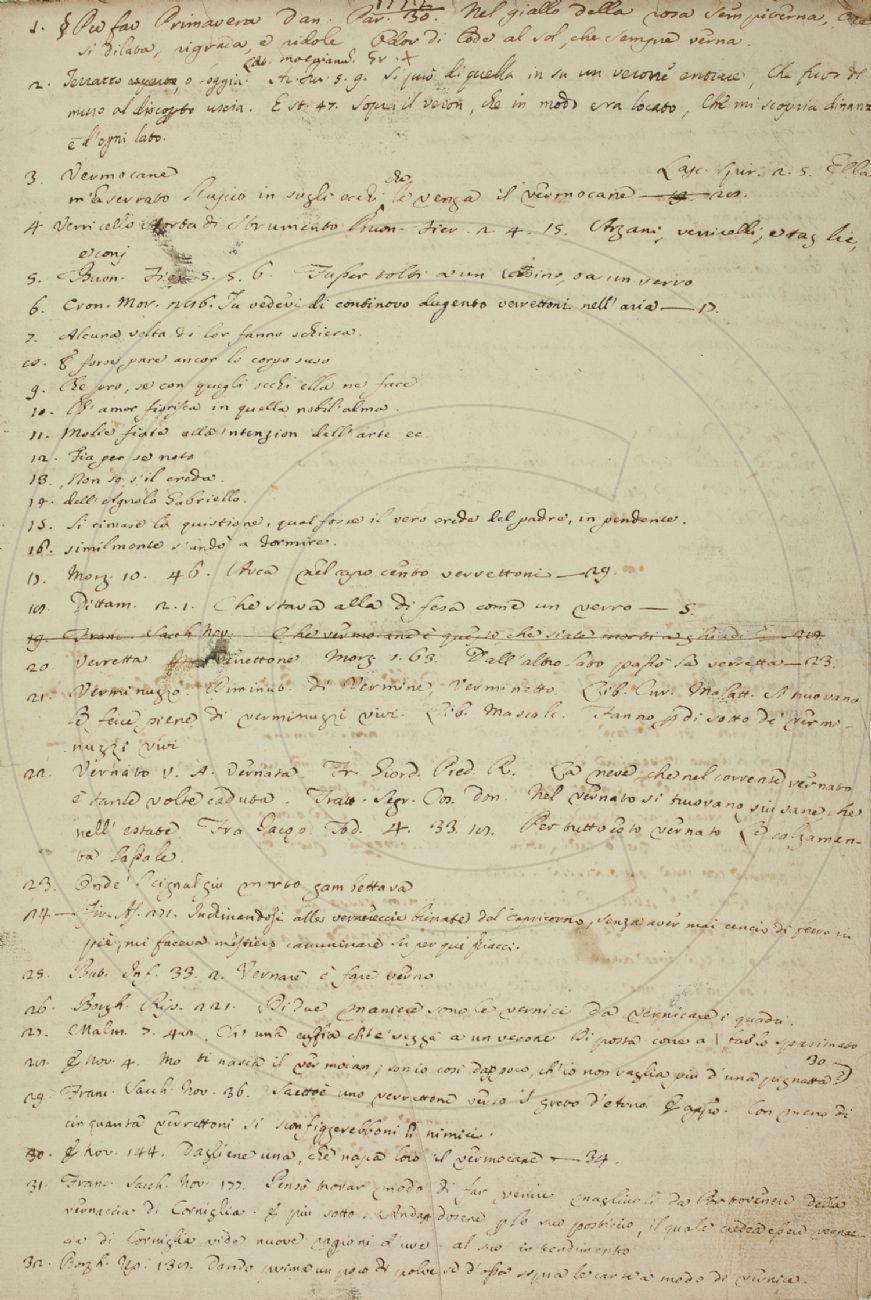 1. § Per far Primavera Dan. Par. 30. Nel giallo della rosa sempiterna, Che
si dilata, rigrada, e ridole Odor di lode al sol, che sempre verna.
2. Terrazzo scoperto, o loggia. Ar. Fur. 5. 9. Si può di quella in su un verone entrare, Che fuor del
muro al discopto uscia. E st. 47. Sopra il veron, che in modo era locato, Che mi scopria dinanzi
e d'ogni lato.
3. Vermocane Lasc. Spir. 2. 5. Ella
m'ha serrato l'uscio in sugli occhi, che le venga il vermocane 28.
4 Verricello Sorta di Strumento Buon. Fier. 2. 4. 15. Argani, verricelli, e taglie,
e conj
5. Buon. Fier. 5. 5. 6. o a un verro
6. Cron. Mor. Tu vedevi di continovo dugento verrettoni nell'aria — 17.
7. Alcuna volta di lor fanno schiera.
8. E forse pare ancor lo corpo suso
9. Che pro, se con quegli occhi ella ne face
10. Ch'amor fiorisca in quella nobil'alma.
11. Molte fiate alla 'ntenzion dell'arte ec
12. Fia per se noto
13. Non so s'il creda.
14. dell'Agnolo Gabriello.
15. Si rimase la quistione, qual fosse il vero erede del padre, in pendente.
16. similmente s'andò a dormire.
17. Morg. 10. 46. Arca nel capo cento verrettoni — 29.
18. Dittam. 2. 1. Che stava alla difesa come un verro — 5.
19. Franc. Sacch. Nov. Che vermocane è questo che siate morti a ghiadi
20. Verretta verrettone Morg. 1. 63. Dall'altro lato passò la verretta — 23.
21. Verminuzzo Diminut. di Vermine, Verminetto. Lib. Cur. Malatt. Si truovano
le fecce piene di verminuzzi vivi. Lib. Mascalc. Fanno p di sotto de' vermi-
nuzzi vivi
22. Vernato v. A. Vernata. Fr. Giord. Pred. R. La neve, che nel corrente vernato
è tante volte caduta. Tratt. Segr. Cos. Don. Nel vernato si truovano più sane che
nell'estate Fra Jacop. Tod. 4. 33. 18. Per tutto esto vernato Le calzamen-
ta lassale.
23. Onde l cignal giù morto gambettava
24 — Fir. As. 271. Inclinandosi alle vernereccie brinate del Capricorno, senza aver mai cencio di ferro in
piè, mi faceva mestiero camminare su per que' ghiacci.
25. But. Inf. 33. 2. Vernare è fare verno
26. Borgh. Rip. 221. Di due maniere sono le vernici da vernicare i quadri.
27. Malm. 7. 42. Ch'una cuffia ch'e' vegga a un verone Di posta corre a far lo spasimato
28. E Nov. 4. Mo ti nasca il vermocan; son io così dappoco, ch'io non vaglia più d'una pignatta? 30 —
29. Franc. Sacch. Nov. 36. Saettòe uno verrettone verso il greto d'Arno. E appr. Con meno di
cinquanta verrettoni si sconfiggerebboni li nimici.
30. E nov. 144. Dagliene una, che nasca loro il vermocane — 34.
31. Franc. Sacch. Nov. 177. Pensò trovar modo di far venire magliuoli da Portovenere della
vernaccia di Corniglia. E più sotto. Andandosene p lo suo posticcio, il quale credea esser vernac-
cia di Corniglia vide nuove ragioni d'uve al suo intendimento
32. Borgh. Rip. 139. Dando prima un poco di polvere d'ossa sopra le carte a modo di vernice.